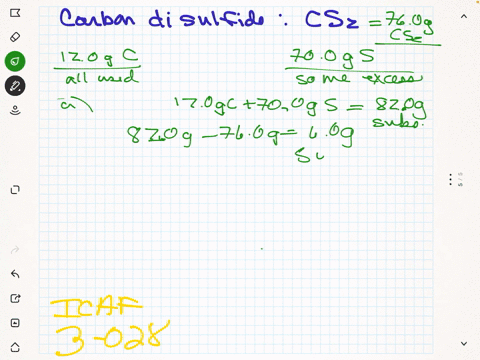 Carbon disulfide : CS2 = 76.0g
CS2
12.0g C 70.0g S
all used some excess
a) 12.0gC + 70.0g S = 82.0g
subs.
82.0g - 76.0g = 6.0g
Su
ICAF
3-028